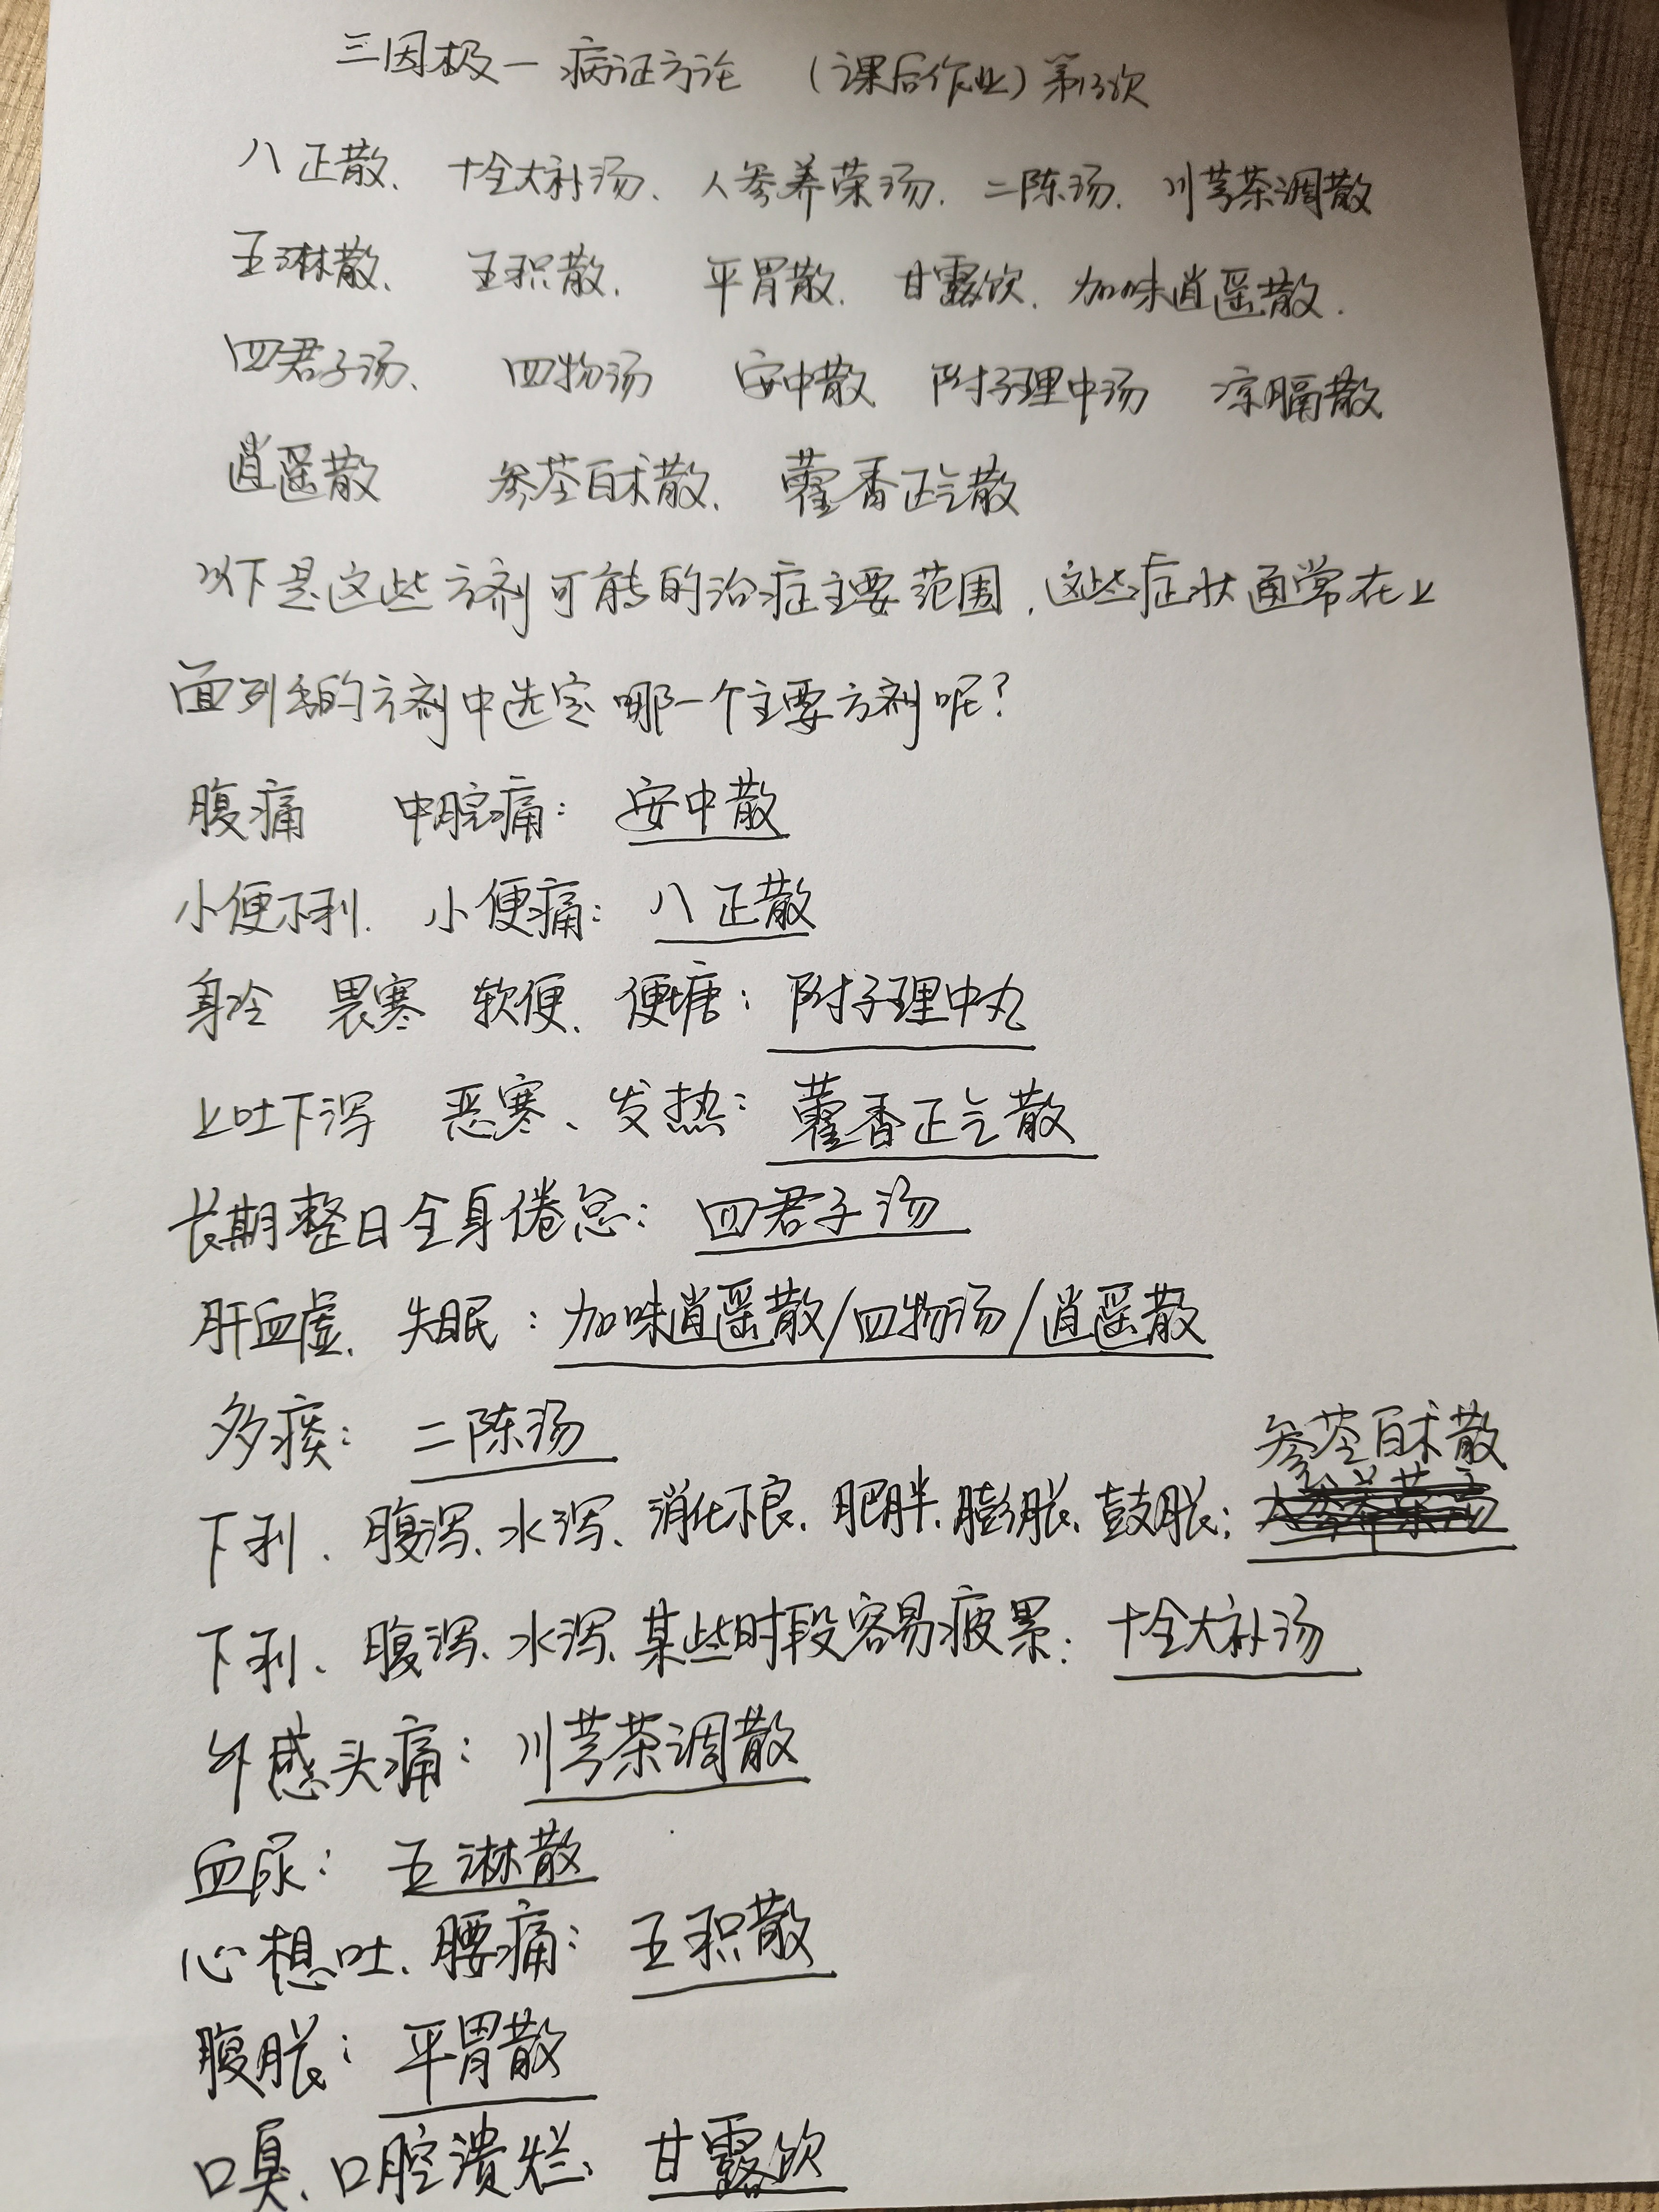 三因极一病证方论 (课后作业)第13次
八正散、十全大补汤、人参养荣汤、二陈汤、川芎茶调散
五淋散、五积散、平胃散、甘露饮、加味逍遥散.
四君子汤、四物汤 安中散 附子理中汤 凉膈散
逍遥散 参苓白术散、藿香正气散
以下是这些方剂可能的治症主要范围,这些症状通常在上
面列出的方剂中选定哪一个主要方剂呢?
腹痛 中脘痛:安中散
小便不利、小便痛:八正散
身冷 畏寒 软便、便塘:附子理中丸
上吐下泻 恶寒、发热:藿香正气散
长期整日全身倦怠:四君子汤
肝血虚、失眠:加味逍遥散/四物汤/逍遥散
多痰:二陈汤
参苓白术散
下利、腹泻、水泻、消化不良、肥胖、膨胀、鼓胀:人参养荣汤
下利、腹泻、水泻、某些时段容易疲累:十全大补汤
外感头痛:川芎茶调散
血尿:五淋散
心想吐、腰痛:五积散
腹胀:平胃散
口臭、口腔溃烂、甘露饮